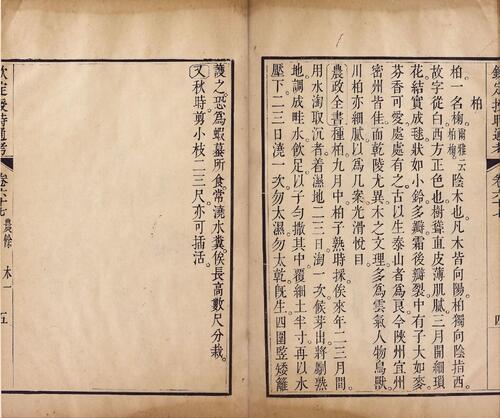 欽定授時通考
四
柏
柏一名椈爾雅云柏椈陰木也凡木皆向陽柏獨向陰指西
故字從白西方正色也樹聳直皮薄肌膩三月開細瑣
花結實成毬狀如小鈴多瓣霜後瓣裂中有子大如麥
芬香可愛處處有之古以生泰山者爲良今陜州宜州
密州皆佳而乾陵尤異木之文理多爲雲氣人物鳥獸
川柏亦細膩以爲几案光滑悅目
農政全書種柏九月中柏子熟時採俟來年二三月間
用水淘取沉者着濕地二三日淘一次候芽出將劚熟
地調成畦水飲足以子勻撒其中覆細土半寸再以水
壓下二三日澆一次勿太濕勿太乾旣生四圍豎矮籬
護之恐爲蝦蟇所食常澆水糞俟長高數尺分栽
又秋時剪小枝二三尺亦可插活
欽定授時通考 卷六十七 農餘 木一 五